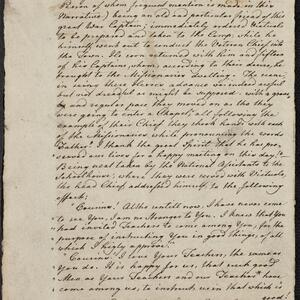 Person of whom frequent mention is made in this
Narrative) being an old and particular friend of this
great War Captain; immediately ordered Victuals
to be prepared and taken to the Camp, while he
himself went out to conduct the Victual Chief into
the Town. He soon returned with him and fifteen
of his Captains whom, according to their desire, he
brought to the Missionaries Dwelling. The near-
ing of these
but not dreadful as might be supposed: with a grave
and regular pace they moved on as tho they
were going to enter a Chapel; all following the
example of their Chief they shook hands with each
of the Missionaries while pronouncing the words
Father! I thank the great Spirit that he has pre-
served us for a happy meeting on this day.
Being next taken by the National Assistants to the
Schoolhouse, where they were treated with Victuals,
the head Chief addressed himself to the following
effect:
"Cousins! Altho untill now, I have never come
to see You, I am no Stranger to You. I knew that You
had invited Teachers to come among You, for the
purpose of instructing You in good things, of all
which I highly approve."
"Cousins! I love Your Teachers, the same as
You do. It is happy for us, that such good
Men as Your Teachers and our Teachers have
come among us, to instruct us in that which is